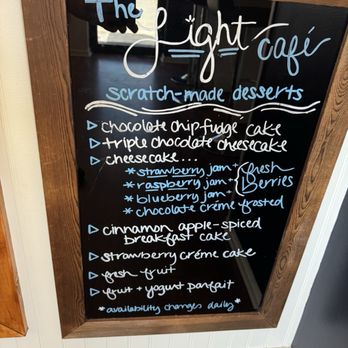 The
Light café
scratch-made desserts
▷ chocolate chip fudge cake
▷ triple chocolate cheesecake
▷ cheesecake...
*strawberry jam + fresh
*raspberry jam + berries
*blueberry jam +
*chocolate créme frosted
▷ cinnamon apple-spiced
breakfast cake
▷ strawberry créme cake
▷ fresh fruit
▷ fruit + yogurt parfait
*availability changes daily*